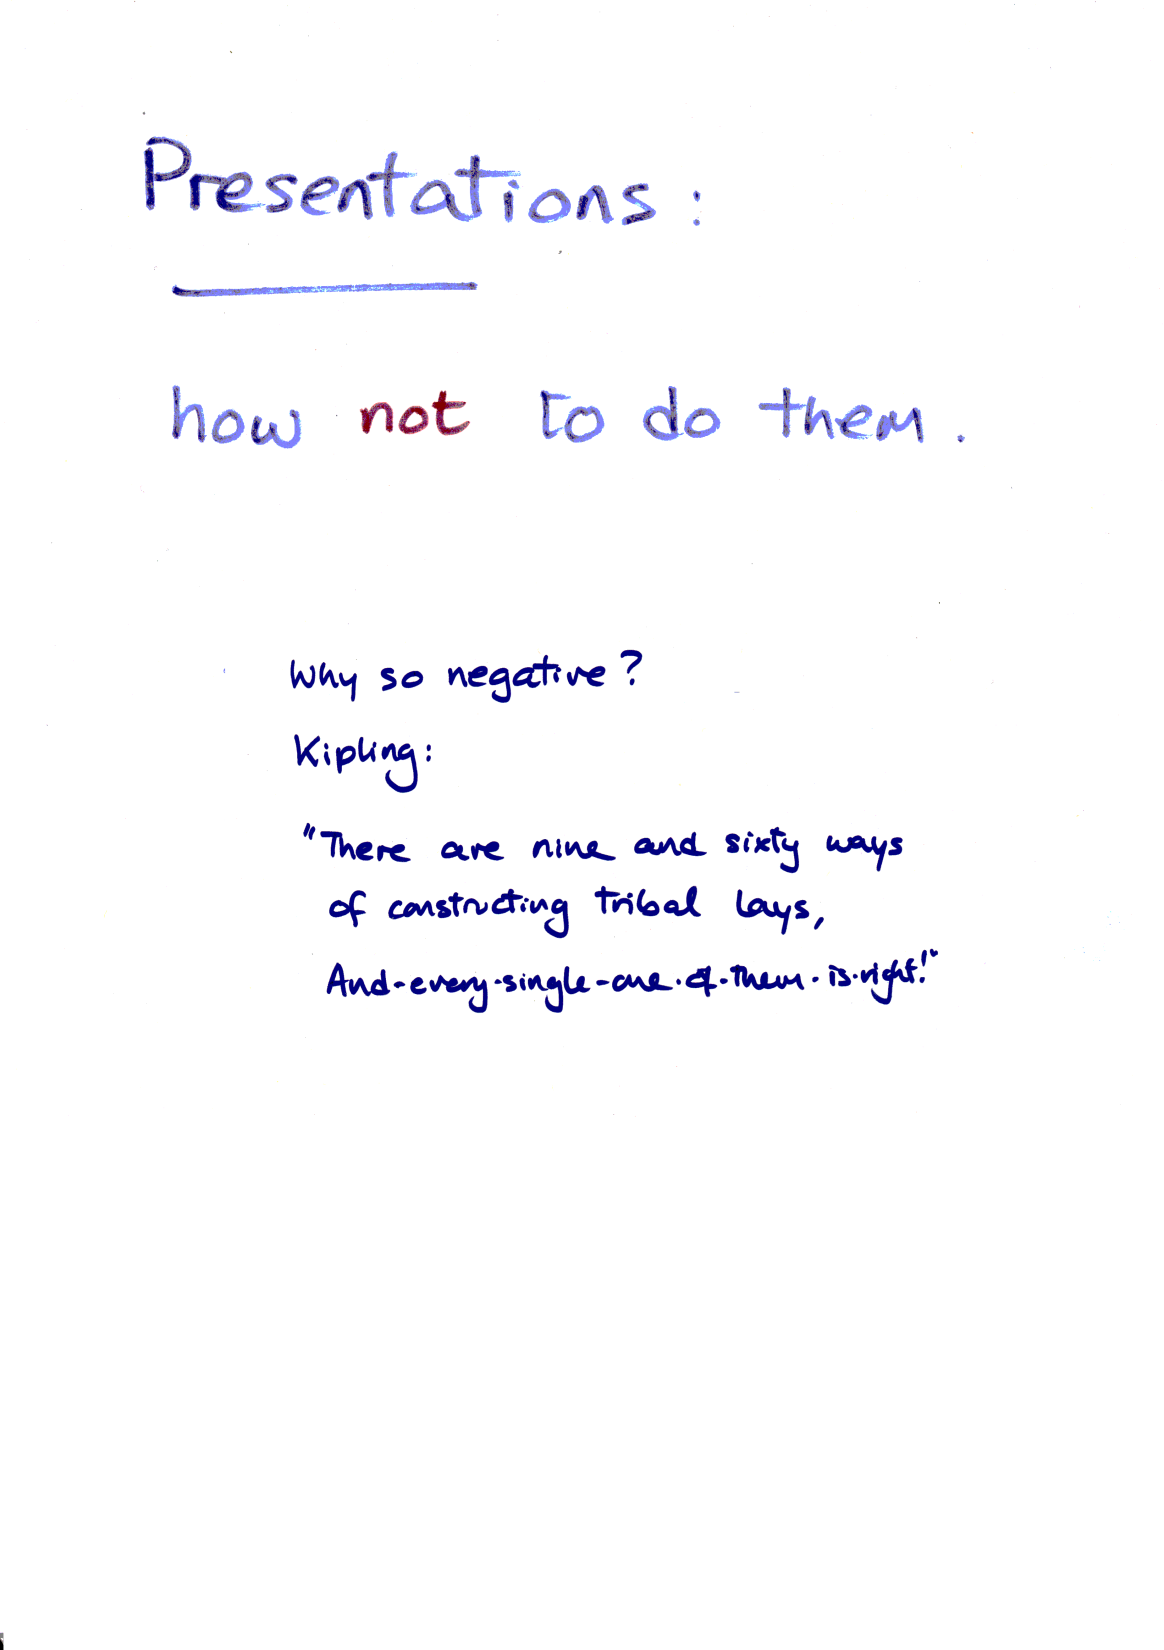 Presentations:
how not to do them.
Why so negative?
Kipling:
"There are nine and sixty ways
of constructing tribal lays,
And-every-single-one-of-them-is-right!"